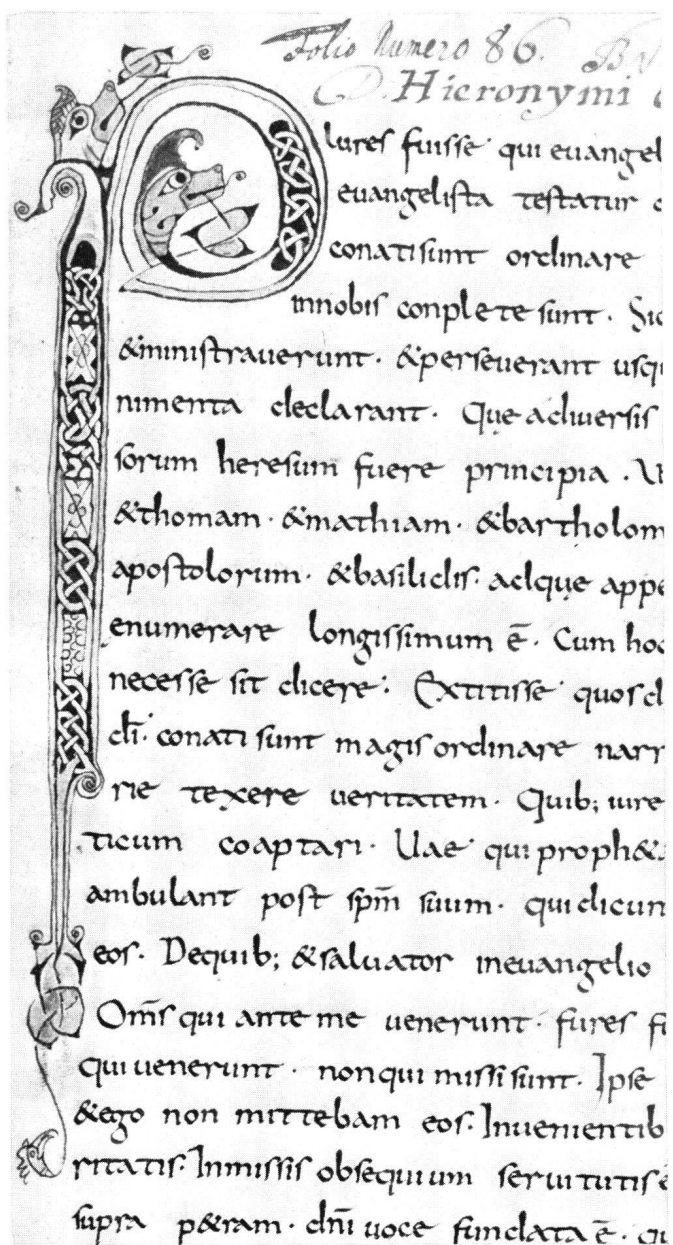 Folio Numero 86.
D. Hieronymi
Plures fuisse qui euangel
euangelista testatur
conati sunt ordinare
innobis conplete sunt. Sic
&ministrauerunt. &perseuerant usq
nimenta declarant. Que aduersis
sorum heresum fuere principia.
&thomam. &mathiam. &bartholom
apostolorum. &basilidis. adque appe
enumerare longissimum ē. Cum hoc
necesse sit dicere. Extitisse quosd
dī. conati sunt magis ordinare narr
rie texere ueritatem. Quib; iure
ticum coaptari. Uae qui proph&
ambulant post spm̄ suum. qui dicun
eos. Dequib; &saluator ineuangelio
Om̄s qui ante me uenerunt. fures fu
qui uenerunt. non qui missi sunt. Ipse
&ego non mittebam eos. Inuenientib
ritatis. Inmissis obsequium seruitutis
supra p&ram. dn̄i uoce fundata ē. qu